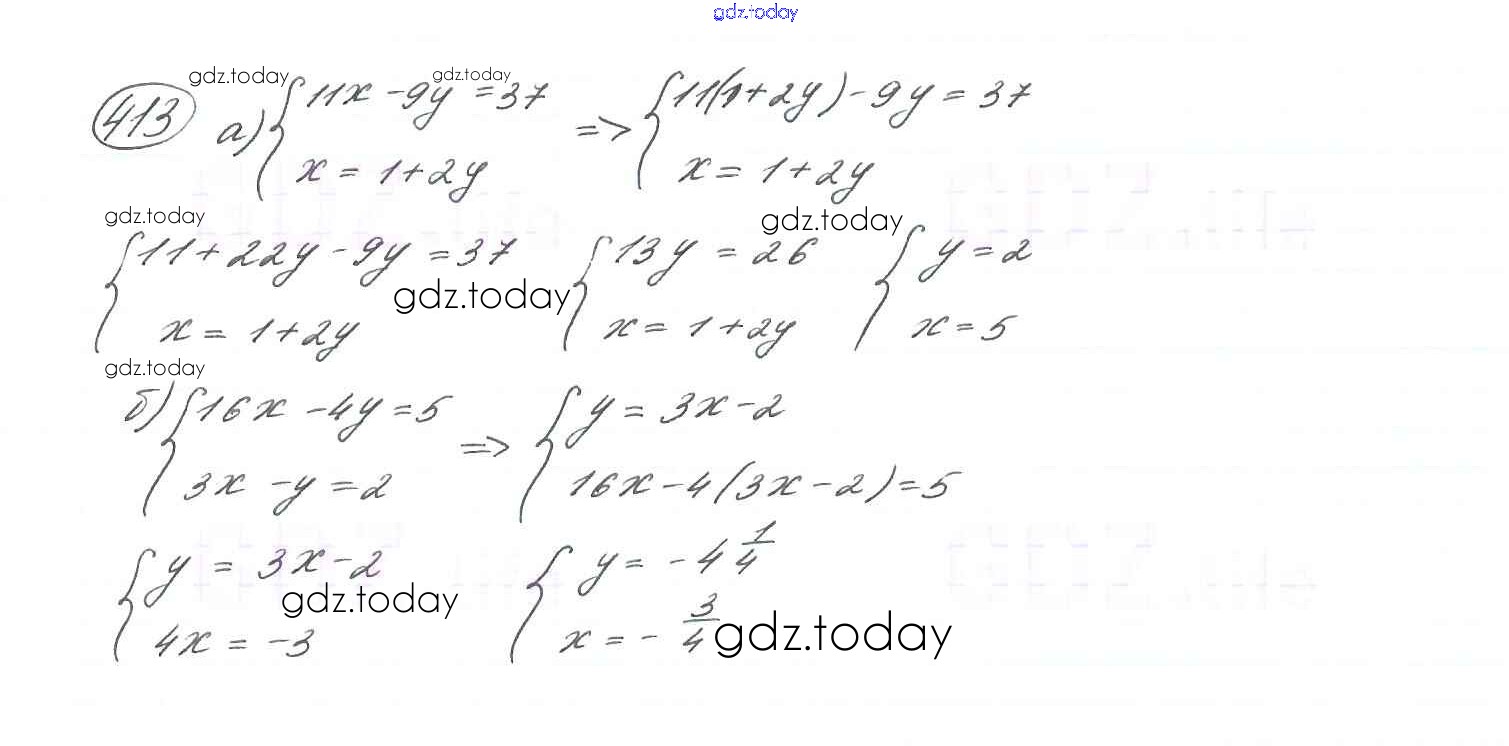 gdz.today
gdz.today gdz.today
413 а) { 11x - 9y = 37 => { 11(1 + 2y) - 9y = 37
x = 1 + 2y x = 1 + 2y
gdz.today gdz.today
{ 11 + 22y - 9y = 37 { 13y = 26 { y = 2
gdz.today
x = 1 + 2y x = 1 + 2y x = 5
gdz.today
б) { 16x - 4y = 5 => { y = 3x - 2
3x - y = 2 16x - 4(3x - 2) = 5
{ y = 3x - 2 { y = -4 1/4
gdz.today
4x = -3 x = - 3/4
gdz.today